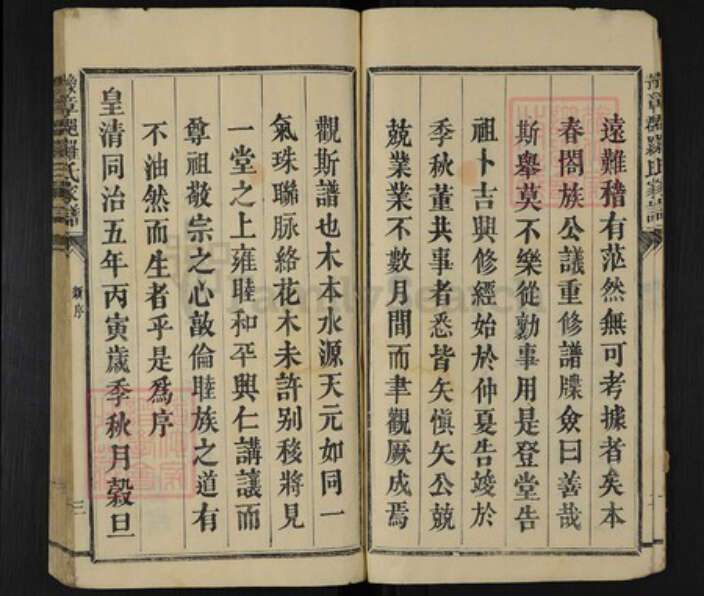 遠難稽有茫然無可考據者矣本
春閤族公議重修譜牒僉曰善哉
斯舉莫不樂從勷事用是登堂告
祖卜吉興修經始於仲夏告竣於
季秋董其事者悉皆矢慎矢公兢
兢業業不數月間而聿觀厥成焉
觀斯譜也木本水源天元如同一
氣珠聯脉絡花木未許别移將見
一堂之上雍睦和平興仁講讓而
尊祖敬宗之心敦倫睦族之道有
不油然而生者乎是為序
皇清同治五年丙寅歲季秋月穀旦
羅氏家譜
新序
三